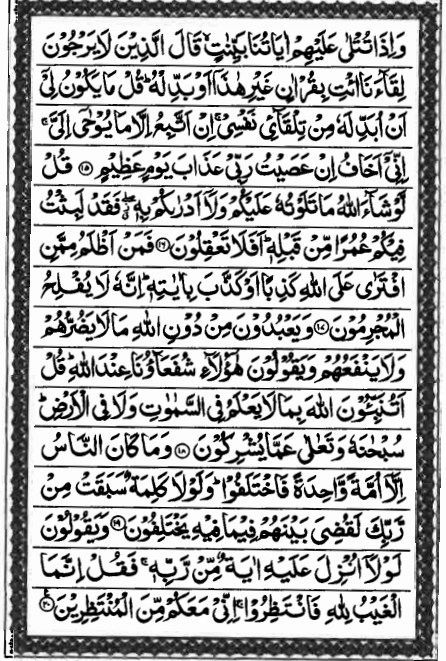 وَاِذَا تُتْلٰى عَلَيْهِمْ اٰيَاتُنَا بَيِّنٰتٍ ۙ قَالَ الَّذِيْنَ لَا يَرْجُوْنَ
لِقَآءَنَا ائْتِ بِقُرْاٰنٍ غَيْرِ هٰذَآ اَوْ بَدِّلْهُ ؕ قُلْ مَا يَكُوْنُ لِيْٓ
اَنْ اُبَدِّلَهٗ مِنْ تِلْقَآئِ نَفْسِيْ ۚ اِنْ اَتَّبِعُ اِلَّا مَا يُوْحٰٓى اِلَيَّ ۚ
اِنِّيْٓ اَخَافُ اِنْ عَصَيْتُ رَبِّيْ عَذَابَ يَوْمٍ عَظِيْمٍ ﴿۱۵﴾ قُلْ
لَّوْ شَآءَ اللّٰهُ مَا تَلَوْتُهٗ عَلَيْكُمْ وَلَآ اَدْرٰىكُمْ بِهٖ ۖ فَقَدْ لَبِثْتُ
فِيْكُمْ عُمُرًا مِّنْ قَبْلِهٖ ؕ اَفَلَا تَعْقِلُوْنَ ﴿۱۶﴾ فَمَنْ اَظْلَمُ مِمَّنِ
افْتَرٰى عَلَى اللّٰهِ كَذِبًا اَوْ كَذَّبَ بِاٰيٰتِهٖ ؕ اِنَّهٗ لَا يُفْلِحُ
الْمُجْرِمُوْنَ ﴿۱۷﴾ وَيَعْبُدُوْنَ مِنْ دُوْنِ اللّٰهِ مَا لَا يَضُرُّهُمْ
وَلَا يَنْفَعُهُمْ وَيَقُوْلُوْنَ هٰٓؤُلَآءِ شُفَعَآؤُنَا عِنْدَ اللّٰهِ ؕ قُلْ
اَتُنَبِّئُوْنَ اللّٰهَ بِمَا لَا يَعْلَمُ فِي السَّمٰوٰتِ وَلَا فِي الْاَرْضِ ؕ
سُبْحٰنَهٗ وَتَعٰلٰى عَمَّا يُشْرِكُوْنَ ﴿۱۸﴾ وَمَا كَانَ النَّاسُ
اِلَّآ اُمَّةً وَّاحِدَةً فَاخْتَلَفُوْا ؕ وَلَوْلَا كَلِمَةٌ سَبَقَتْ مِنْ
رَّبِّكَ لَقُضِيَ بَيْنَهُمْ فِيْمَا فِيْهِ يَخْتَلِفُوْنَ ﴿۱۹﴾ وَيَقُوْلُوْنَ
لَوْلَآ اُنْزِلَ عَلَيْهِ اٰيَةٌ مِّنْ رَّبِّهٖ ۚ فَقُلْ اِنَّمَا
الْغَيْبُ لِلّٰهِ فَانْتَظِرُوْا ۚ اِنِّيْ مَعَكُمْ مِّنَ الْمُنْتَظِرِيْنَ ﴿۲۰﴾